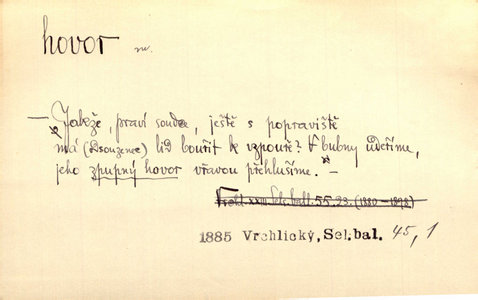 hovor m.
— Jakže, praví soudce, ještě s popraviště
má (odsouzenec) lid bouřit ke vzpouře? V bubny udeříme,
jeho zpupný hovor vřavou přehlušíme. —
Vrchl. XXIII. Sel. ball. 55.23. (1880–1898)
1885 Vrchlický, Sel.bal. 45, 1